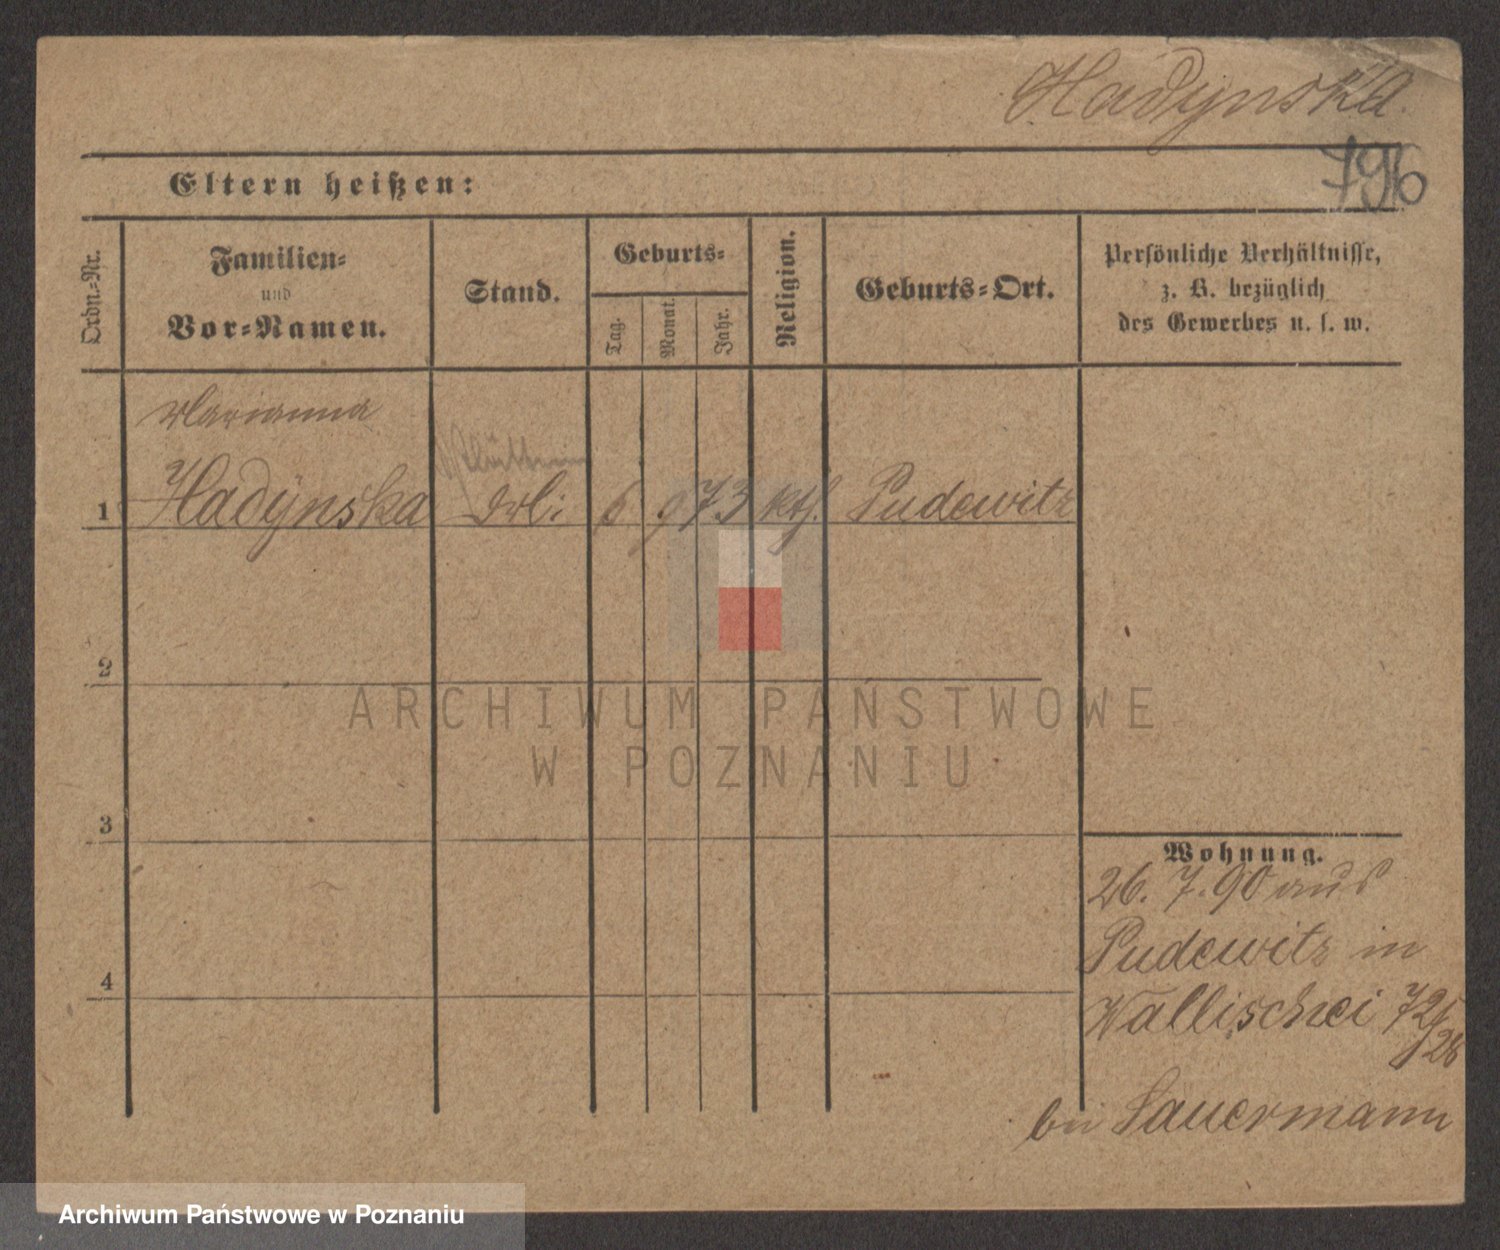 Hadynska.
796
Eltern heißen:
Ordn.-Nr.
Familien-
und
Vor-Namen.
Stand.
Geburts-
Tag.
Monat.
Jahr.
Religion.
Geburts-Ort.
Persönliche Verhältnisse,
z. B. bezüglich
des Gewerbes u. s. w.
Marianna
1 Hadÿnska 6 9 73 kth. Pudewitz
2
3
4
Wohnung.
26. 7. 90 aus
Pudewitz in
Wallischei 72/
bei Sauermann
ARCHIWUM PAŃSTWOWE
W POZNANIU
Archiwum Państwowe w Poznaniu